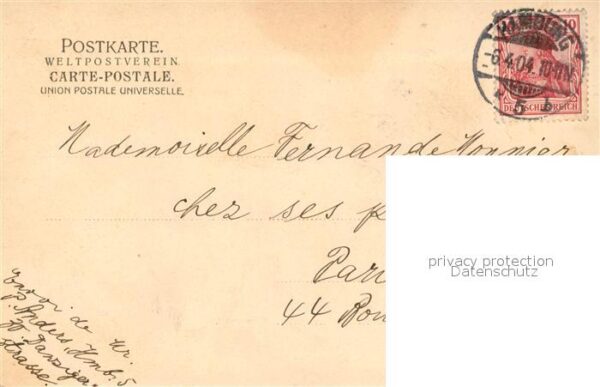 POSTKARTE.
WELTPOSTVEREIN.
CARTE-POSTALE.
UNION POSTALE UNIVERSELLE.
HAMBURG
-6.4.04. 10-11 N.
* 5 b
10
DEUTSCHES REICH
Mademoiselle Fernande Monnier
chez ses p
Pari
44 Bou
privacy protection
Datenschutz
Envoi de Mr.
P. Anders, Hmb. 5
Danziger
strasse.